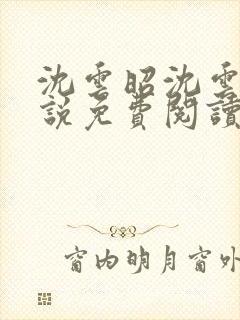 沈雲昭沈雲
說免費閱讀
窗内明月窗外